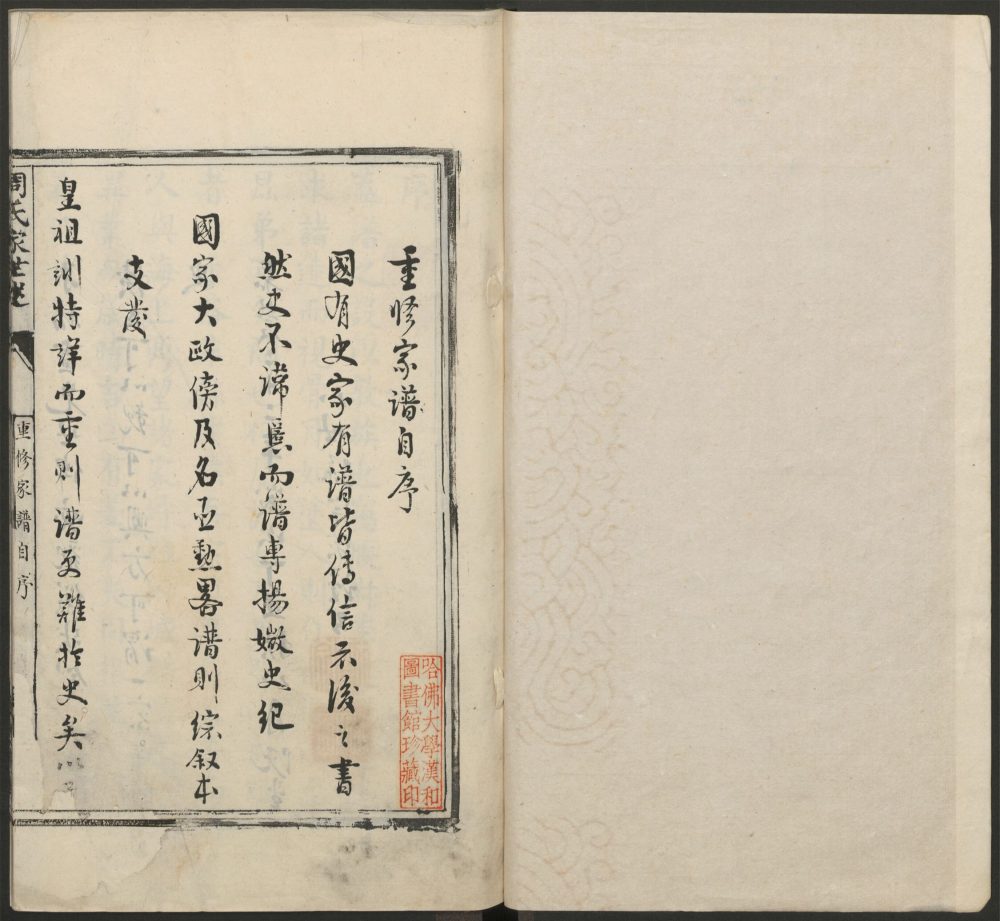 重修家譜自序
國有史家有譜皆傳信示後之書
然史不諱慝而譜專揚媺史紀
國家大政傍及名臣勲畧譜則綜叙本
支發
皇祖訓特詳而重則譜更難於史矣
周氏家世述
重修家譜自序
哈佛大學漢和
圖書館珍藏印